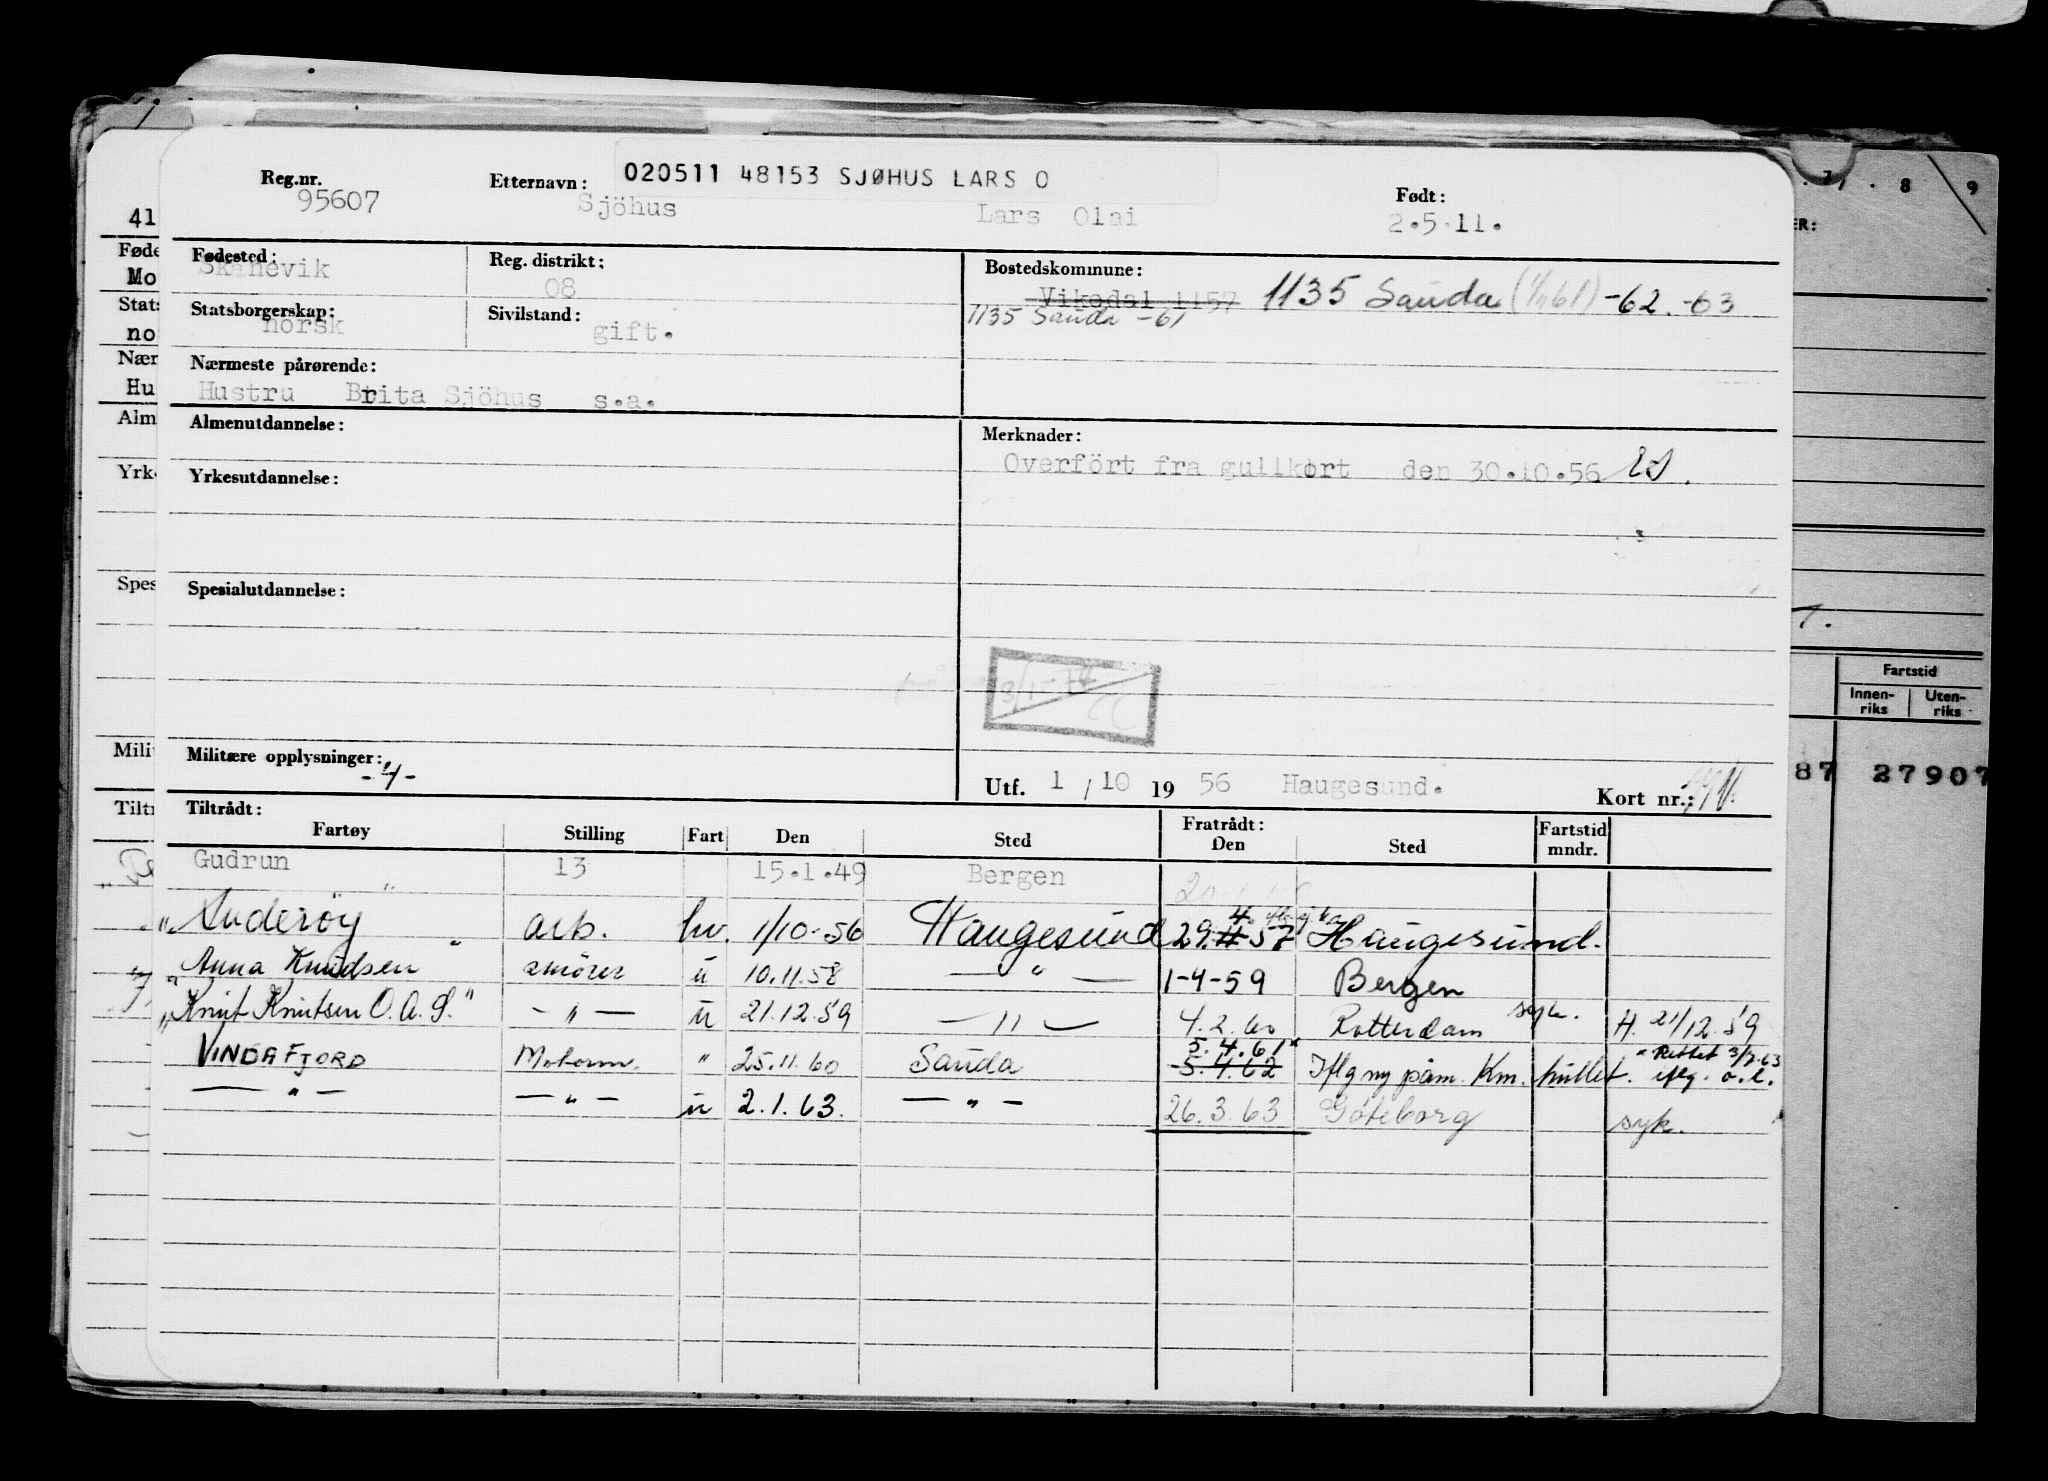 Reg.nr. 95607 Etternavn: 020511 48153 SJØHUS LARS O Født:
Sjöhus Lars Olai 2.5.11.
Fødested: Skånevik Reg. distrikt: 08 Bostedskommune: Vikedal 1157 1135 Sauda (1/1 61) -62. -63
Statsborgerskap: norsk Sivilstand: gift. 1135 Sauda -61
Nærmeste pårørende:
Hustru Brita Sjöhus s.a.
Almenutdannelse: Merknader:
Overfört fra gullkort den 30.10.56
Yrkesutdannelse:
Spesialutdannelse:
Militære opplysninger: -4- Utf. 1/10 1956 Haugesund. Kort nr.:
Tiltrådt: Fratrådt:
Fartøy Stilling Fart Den Sted Den Sted Fartstid mndr.
Gudrun 13 15.1.49 Bergen
"Suderöy" arb. hv. 1/10-56 Haugesund 29.4.57 Haugesund.
"Anna Knudsen" smører u 10.11.58 — " — 1-4-59 Bergen
"Knut Knutsen O.A.S." - " - u 21.12.59 — " — 4.2.60 Rotterdam syk. H. 21/12.59
5.4.61* * Rettet 3/7.63
VINDAFJORD Motorm. " 25.11.60 Sauda 5.4.62 Iflg ny påm. Km. hullet. iflg. o.l.
— " — — " — u 2.1.63. — " — 26.3.63 Göteborg syk.
41
Føde
Mo
Stats
no
Nær
Hu
Alm
Yrk
Spes
Milit
Tiltr
7. 8 9
ER:
Fartstid
Innen-riks Uten-riks
87 27907